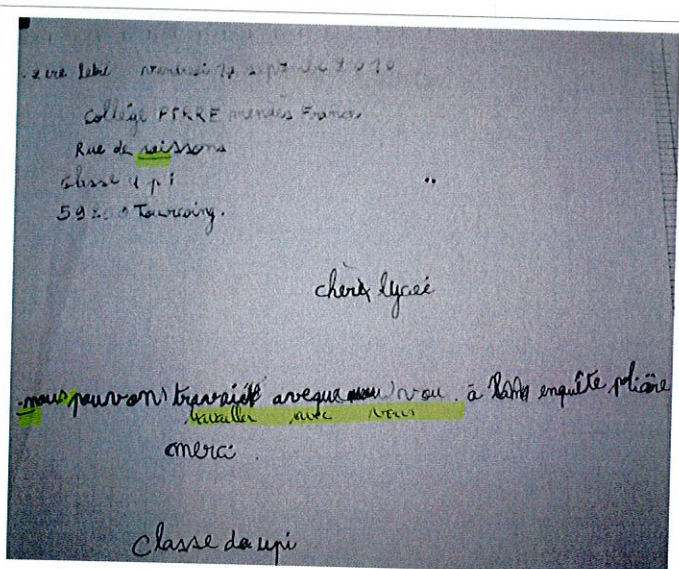 vendredi sept 2010
collège PIERRE mendès France
Rue de soissons
classe upi
59200 Tourcoing.
chère lyceé
nous pouvons travaiée aveque vou. à enquête
travailler avec vous
merci.
classe de upi